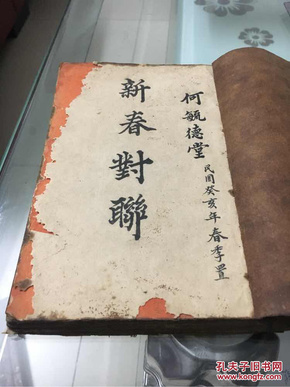 何毓德堂
民国癸亥年春季置
新春對聯
孔夫子旧书网